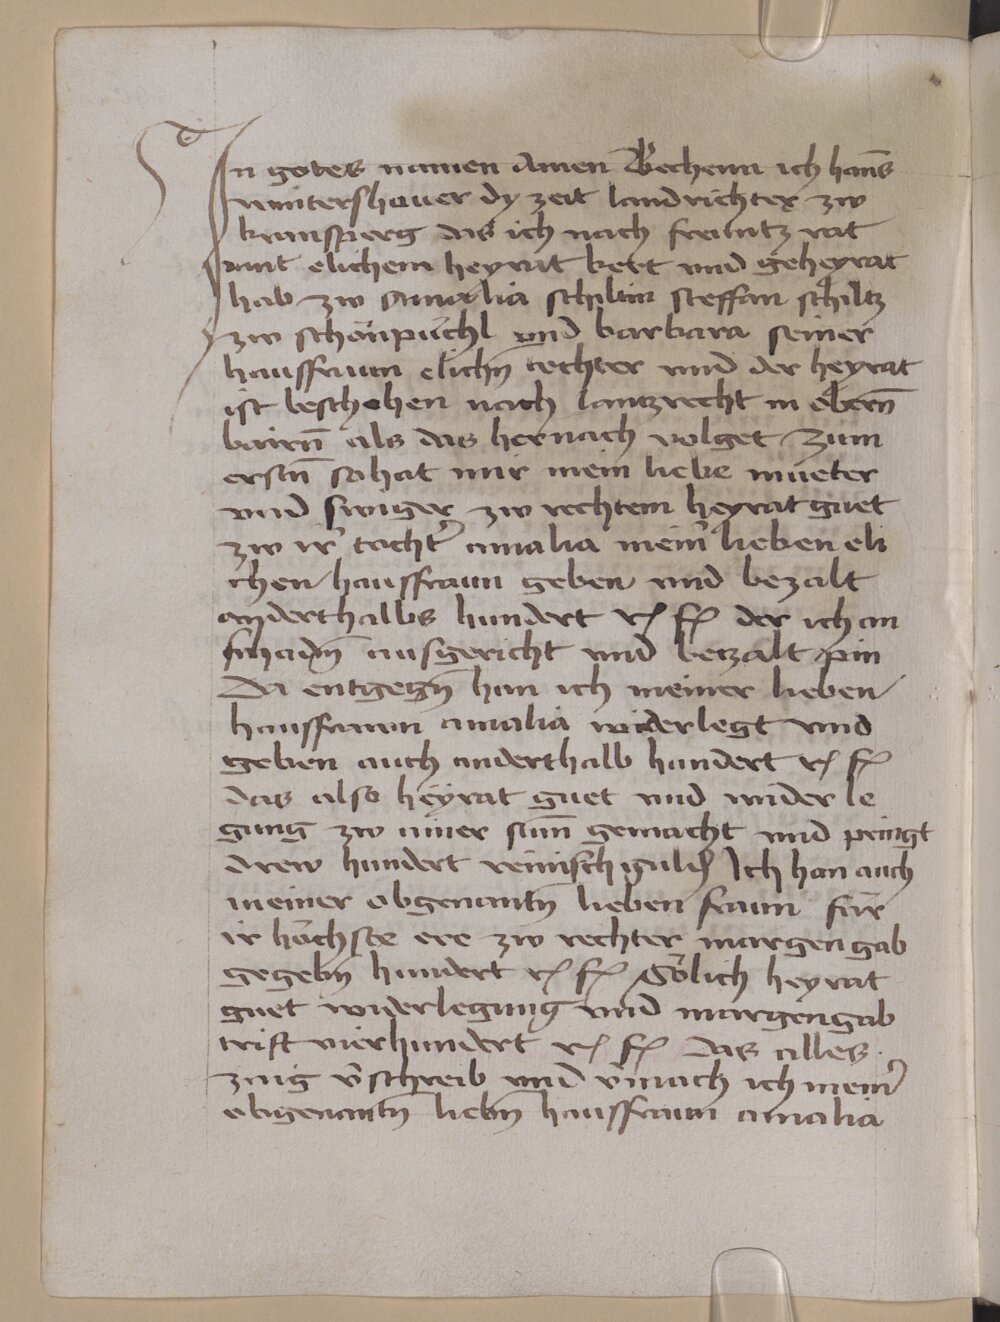 In gotes namen Amen Bechenn ich hanns
wintershover dy zeit landrichter zw
kransperg das ich nach freuntz rat
mit elichem heyrat kert und geheyrat
hab zw Amalia schiltin steffan schiltz
zw schönpüchl und barbara seiner
hausfraun elichn̄ tochter und der heyrat
ist beschehen nach lantzrecht in obern̄
bairn̄ als das hernach volget Zum
erstn̄ so hat mir mein liebe mueter
und swiger zw rechtem heyrat guet
zw ir tocht' amalia mein' lieben eli
chen hausfraun geben und bezalt
anderthalbs hundert r fl der ich an
schadn̄ ausgericht und betzalt pin
Da entgegn̄ han ich meiner lieben
hausfraun amalia widerlegt und
geben auch anderthalb hundert r fl
das also heyrat guet und wider le
gung zw ainer sum̄ gemacht und pringt
drew hundert reinisch guldn̄ Ich han auch
meiner obgenantn̄ lieben fraun für
ir höchste ere zw rechter margengab
gegebn̄ hundert r fl Sölich heyrat
guet widerlegung und margengab
trift vierhundert r fl Das alles
v'schreib und v'mach ich mein'
obgenantn̄ liebn̄ hausfraun amalia